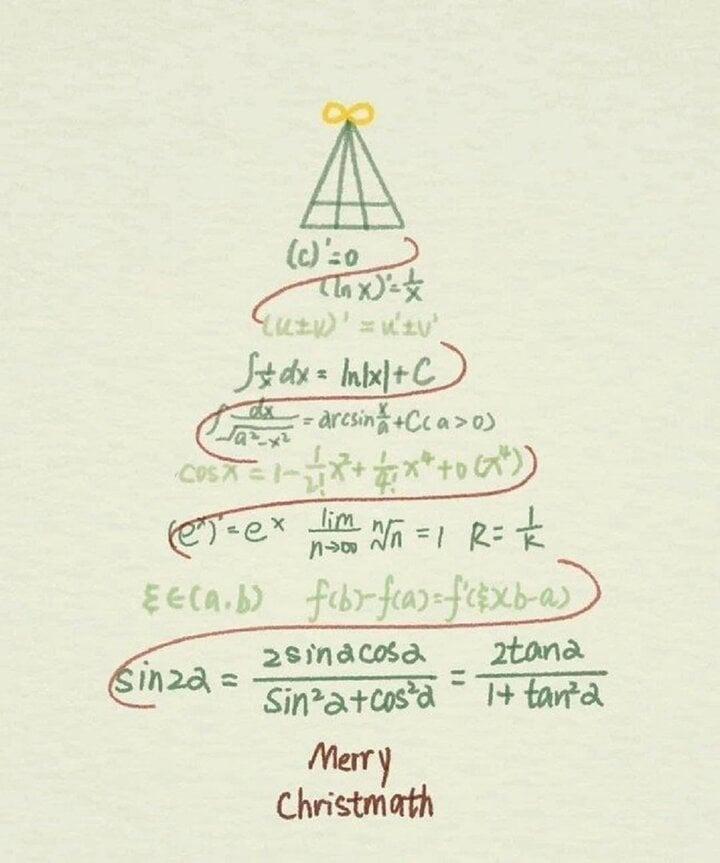 (c)'=0
(ln x)'=1/x
(u±v)' = u'±v'
∫1/x dx = ln|x|+C
∫dx/√(a²-x²) = arcsin x/a +C(a>0)
cosx = 1-1/2! x²+1/4! x⁴+o(x⁴)
(eˣ)'=eˣ lim n→∞ ⁿ√n =1 R=1/k
ξ∈(a.b) f(b)-f(a)=f'(ξ)(b-a)
sin2α = 2sinαcosα/(sin²α+cos²α) = 2tanα/(1+tan²α)
Merry
Christmath